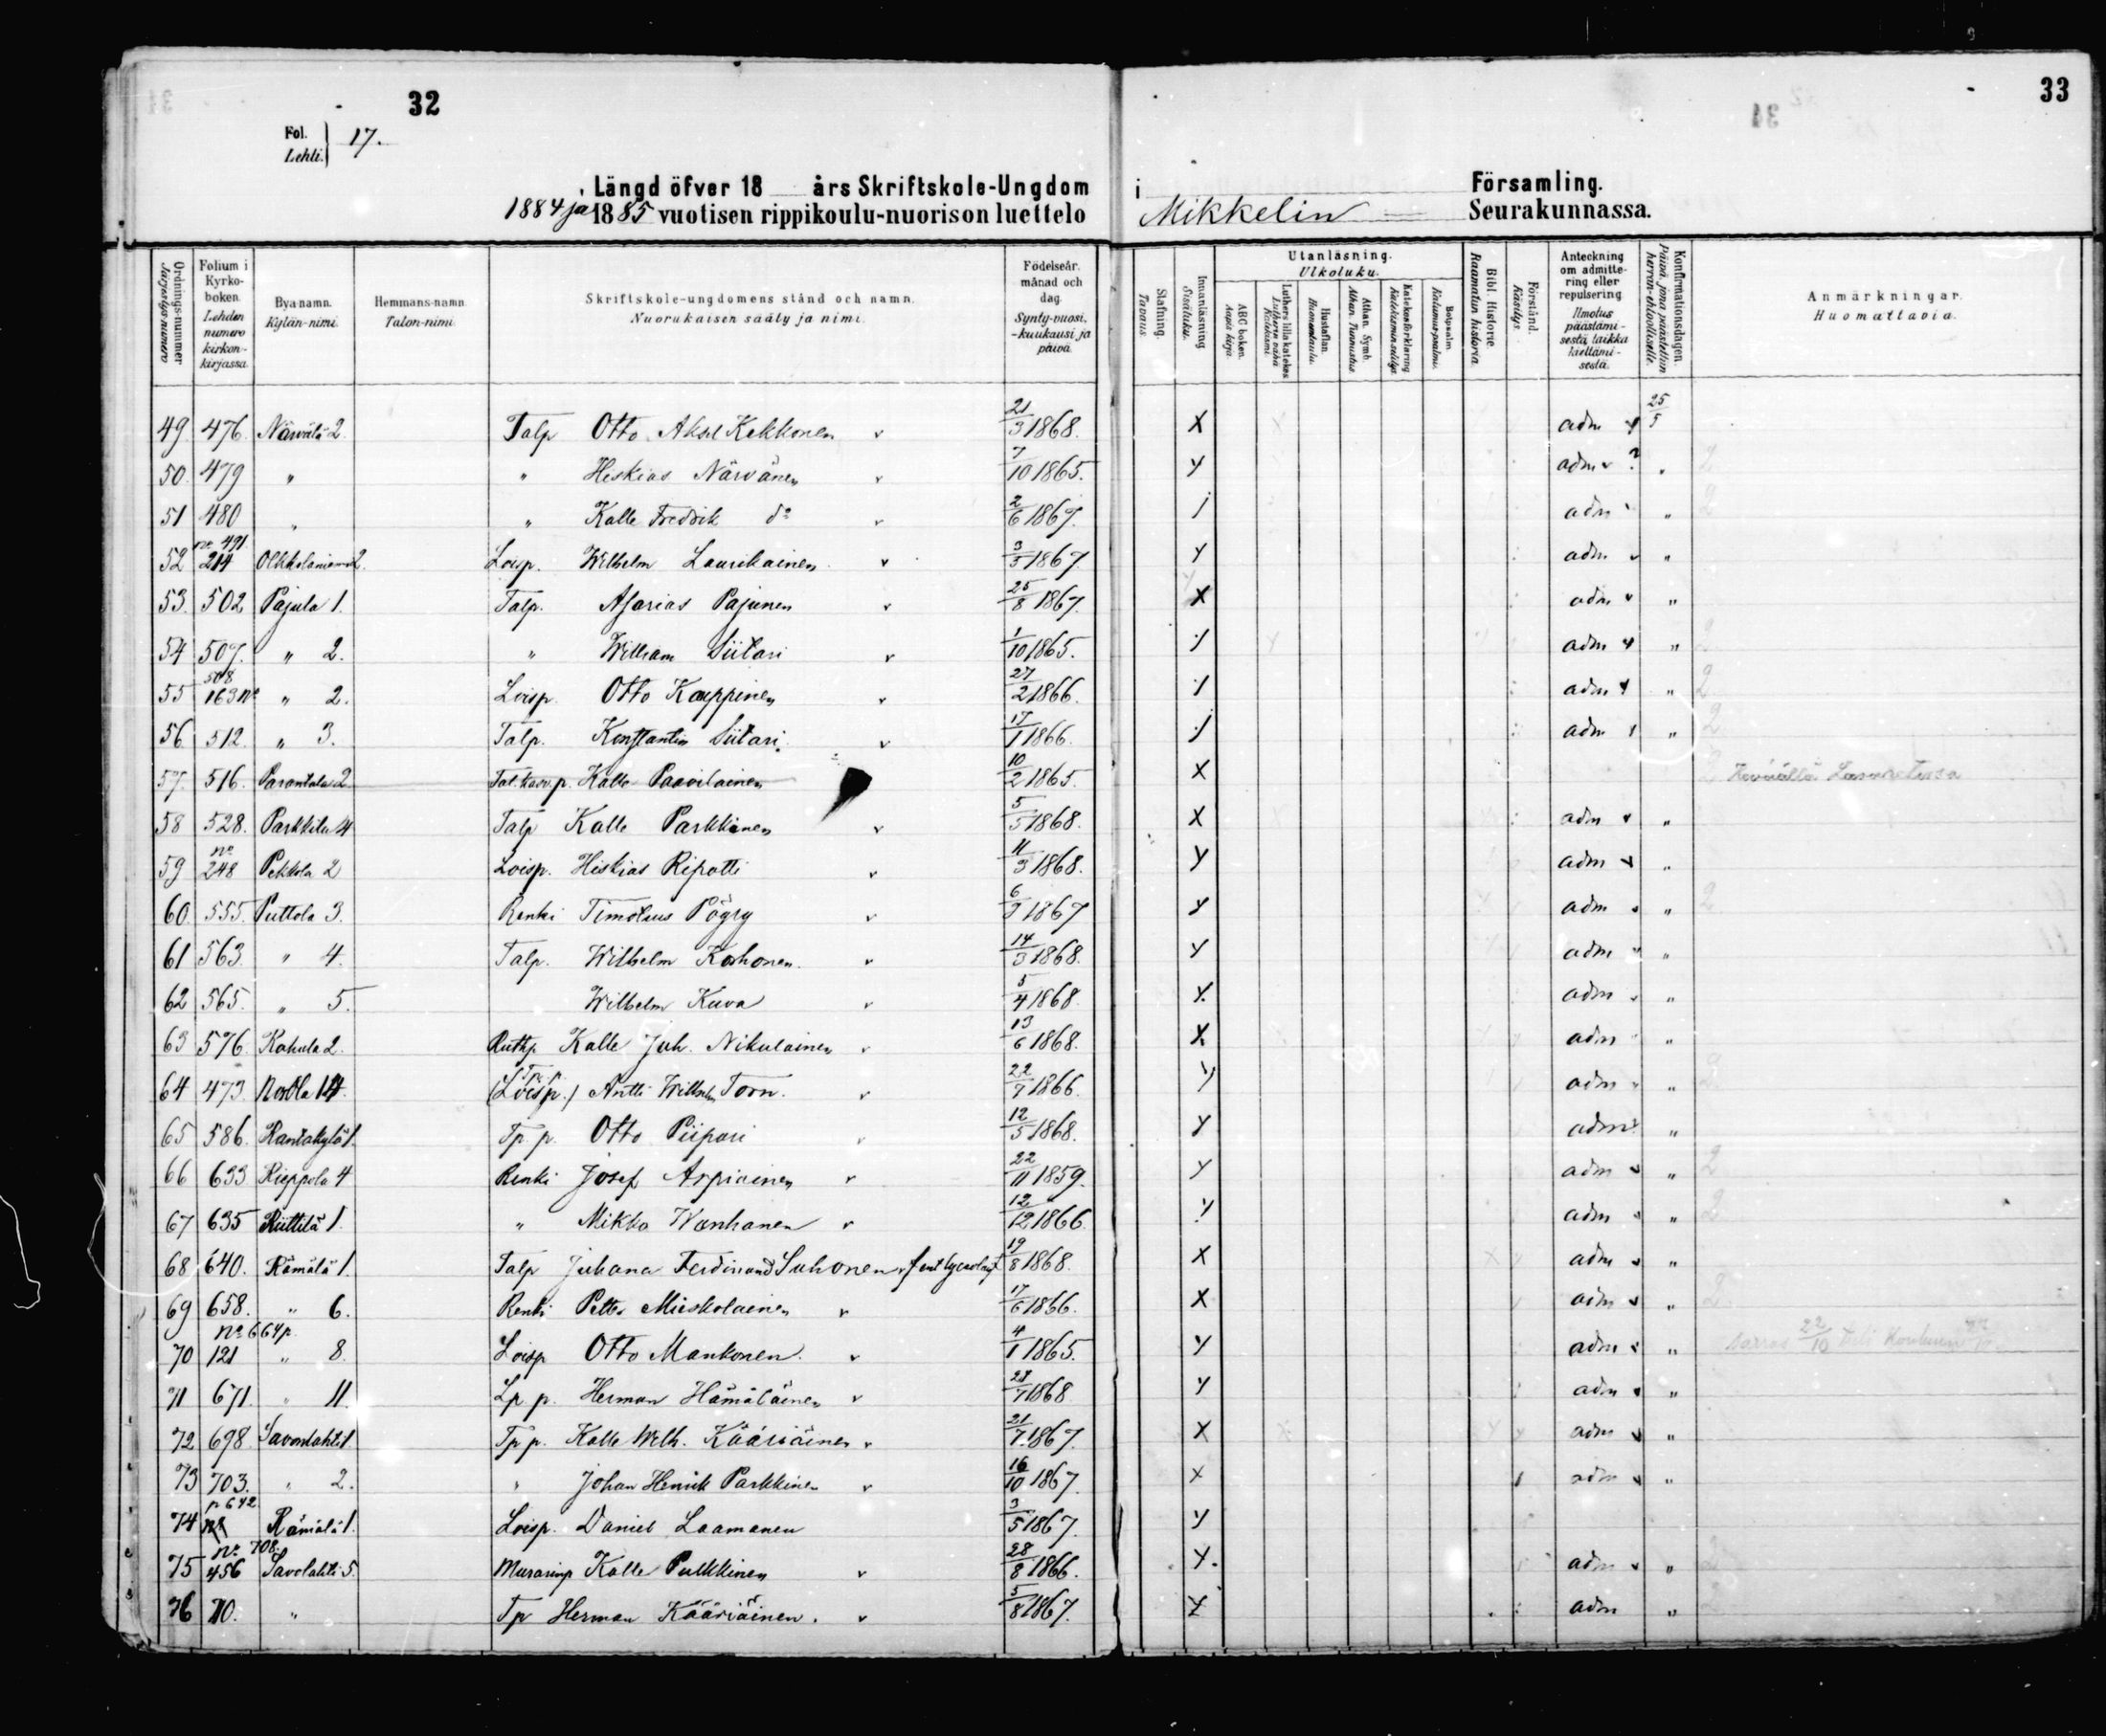 32
33
Fol. Lehti. 17.
Längd öfver 18 års Skriftskole-Ungdom i Församling.
1884 ja 1885 vuotisen rippikoulu-nuorison luettelo Mikkelin Seurakunnassa.
Ordnings-nummer Järjestys-numero
Folium i Kyrko-boken. Lehden numero kirkon-kirjassa.
Bya namn. Kylän-nimi.
Hemmans-namn. Talon-nimi.
Skriftskole-ungdomens stånd och namn. Nuorukaisen sääty ja nimi.
Födelseår. månad och dag. Synty-vuosi, -kuukausi ja päivä.
Stafning. Tavaus.
Innanläsning Sisäluku.
Utanläsning. Ulkoluku.
ABC boken. Aapis kirja.
Luthers lilla katekes Lutherin vähä Katekismi.
Hustaflan. Huoneentaulu.
Athan. Symb. Athan. Tunnustus.
Katekesförklaring Katekismun selitys.
Botpsalm. Katumus-psalmi.
Bibl. Historie Raamatun historia.
Förstånd. Käsitys.
Anteckning om admitte-ring eller repulsering Ilmotus päästämi-sestä taikka kieltämi-sestä.
Konfirmationsdagen. Päivä, jona päästettiin herran-ehtoolliselle.
Anmärkningar. Huomattavia.
49 476 Närvälä 2 Talp Otto Aksel Kekkonen v 21/3 1868. X adm 25/5
50. 479 " " Heskias Närvänen v 7/10 1865. Y adm v ? "
51 480 " " Kalle Fredrik do v 2/6 1867. / adm "
52 no 491 214 Olkkolaniemi 2. Loisp. Wilhelm Laurikainen v 3/5 1867 Y adm v "
53. 502 Pajula 1. Talp. Asarias Pajunen v 25/8 1867. X adm v "
54 507. " 2. " William Siitari v 1/10 1865. / adm v " 2
55 508 163 no " 2. Loisp. Otto Kauppinen v 27/2 1866. / adm v " 2
56 512. " 3. Talp. Konstantin Siitari v 17/1 1866. / adm " 2
57. 516. Parantala 2 p. Kalle Paavilainen 10/2 1865. X Keväällä Lasaretissa
58 528. Parkkila 4 Talp Kalle Parkkinen v 5/5 1868. X adm v "
59 no 248 Pekkola 2 Loisp. Hiskias Ripatti v 11/3 1868. Y adm v "
60 555. Puttola 3. Renki Timoteus Pöyry v 6/9 1867 Y adm v " 2
61 563 " 4. Talp. Wilhelm Korhonen. v 14/3 1868. Y adm v "
62 565. " 5. Wilhelm Kuva v 5/4 1868 Y. adm v "
63 576. Rahula 2. Ruthp. Kalle Juh. Nikulainen v 13/6 1868. X. adm "
64 473. 14 Tp p. (Loisp.) Antti Wilhelm Torn. v 22/7 1866. Y adm "
65 586. Rantakylä 1. Tp p. Otto Piipari v 12/5 1868. Y adm v. "
66 633 Rieppola 4 Renki Josef Arpiainen v 22/11 1859. Y adm v " 2
67 635 Riittilä 1. " Mikko Wanhanen v 12/12 1866. Y adm v " 2
68 640. Rämälä 1. Talp Juhana Ferdinand Suhonen v 19/8 1868. X adm v "
69 658. " 6. Renki Petter Mieskolainen v 17/6 1866. X adm v " 2
70 no 664 p. 121 " 8. Loisp Otto Mankonen. v 4/1 1865. Y adm v " 22/10 tuli Kouluun
71 671. " 11. Lp p. Herman Hämäläinen v 28/7 1868 Y adm v "
72 698. Savonlahti 1. Tp p. Kalle Welh. Kääriäinen v 21/7 1867. X adm v "
73 703. " 2. " Johan Henrik Parkkinen v 16/10 1867. X adm v "
74 p 642 Rämälä 1. Loisp. Daniel Laamanen 3/5 1867. Y
75 no 708. 456 Savolahti 5. Murarinp Kalle Pulkkinen v 28/8 1866. Y. adm v " 2
76 710. " Tp Herman Kääriäinen. v 5/8 1867. Y adm " 2